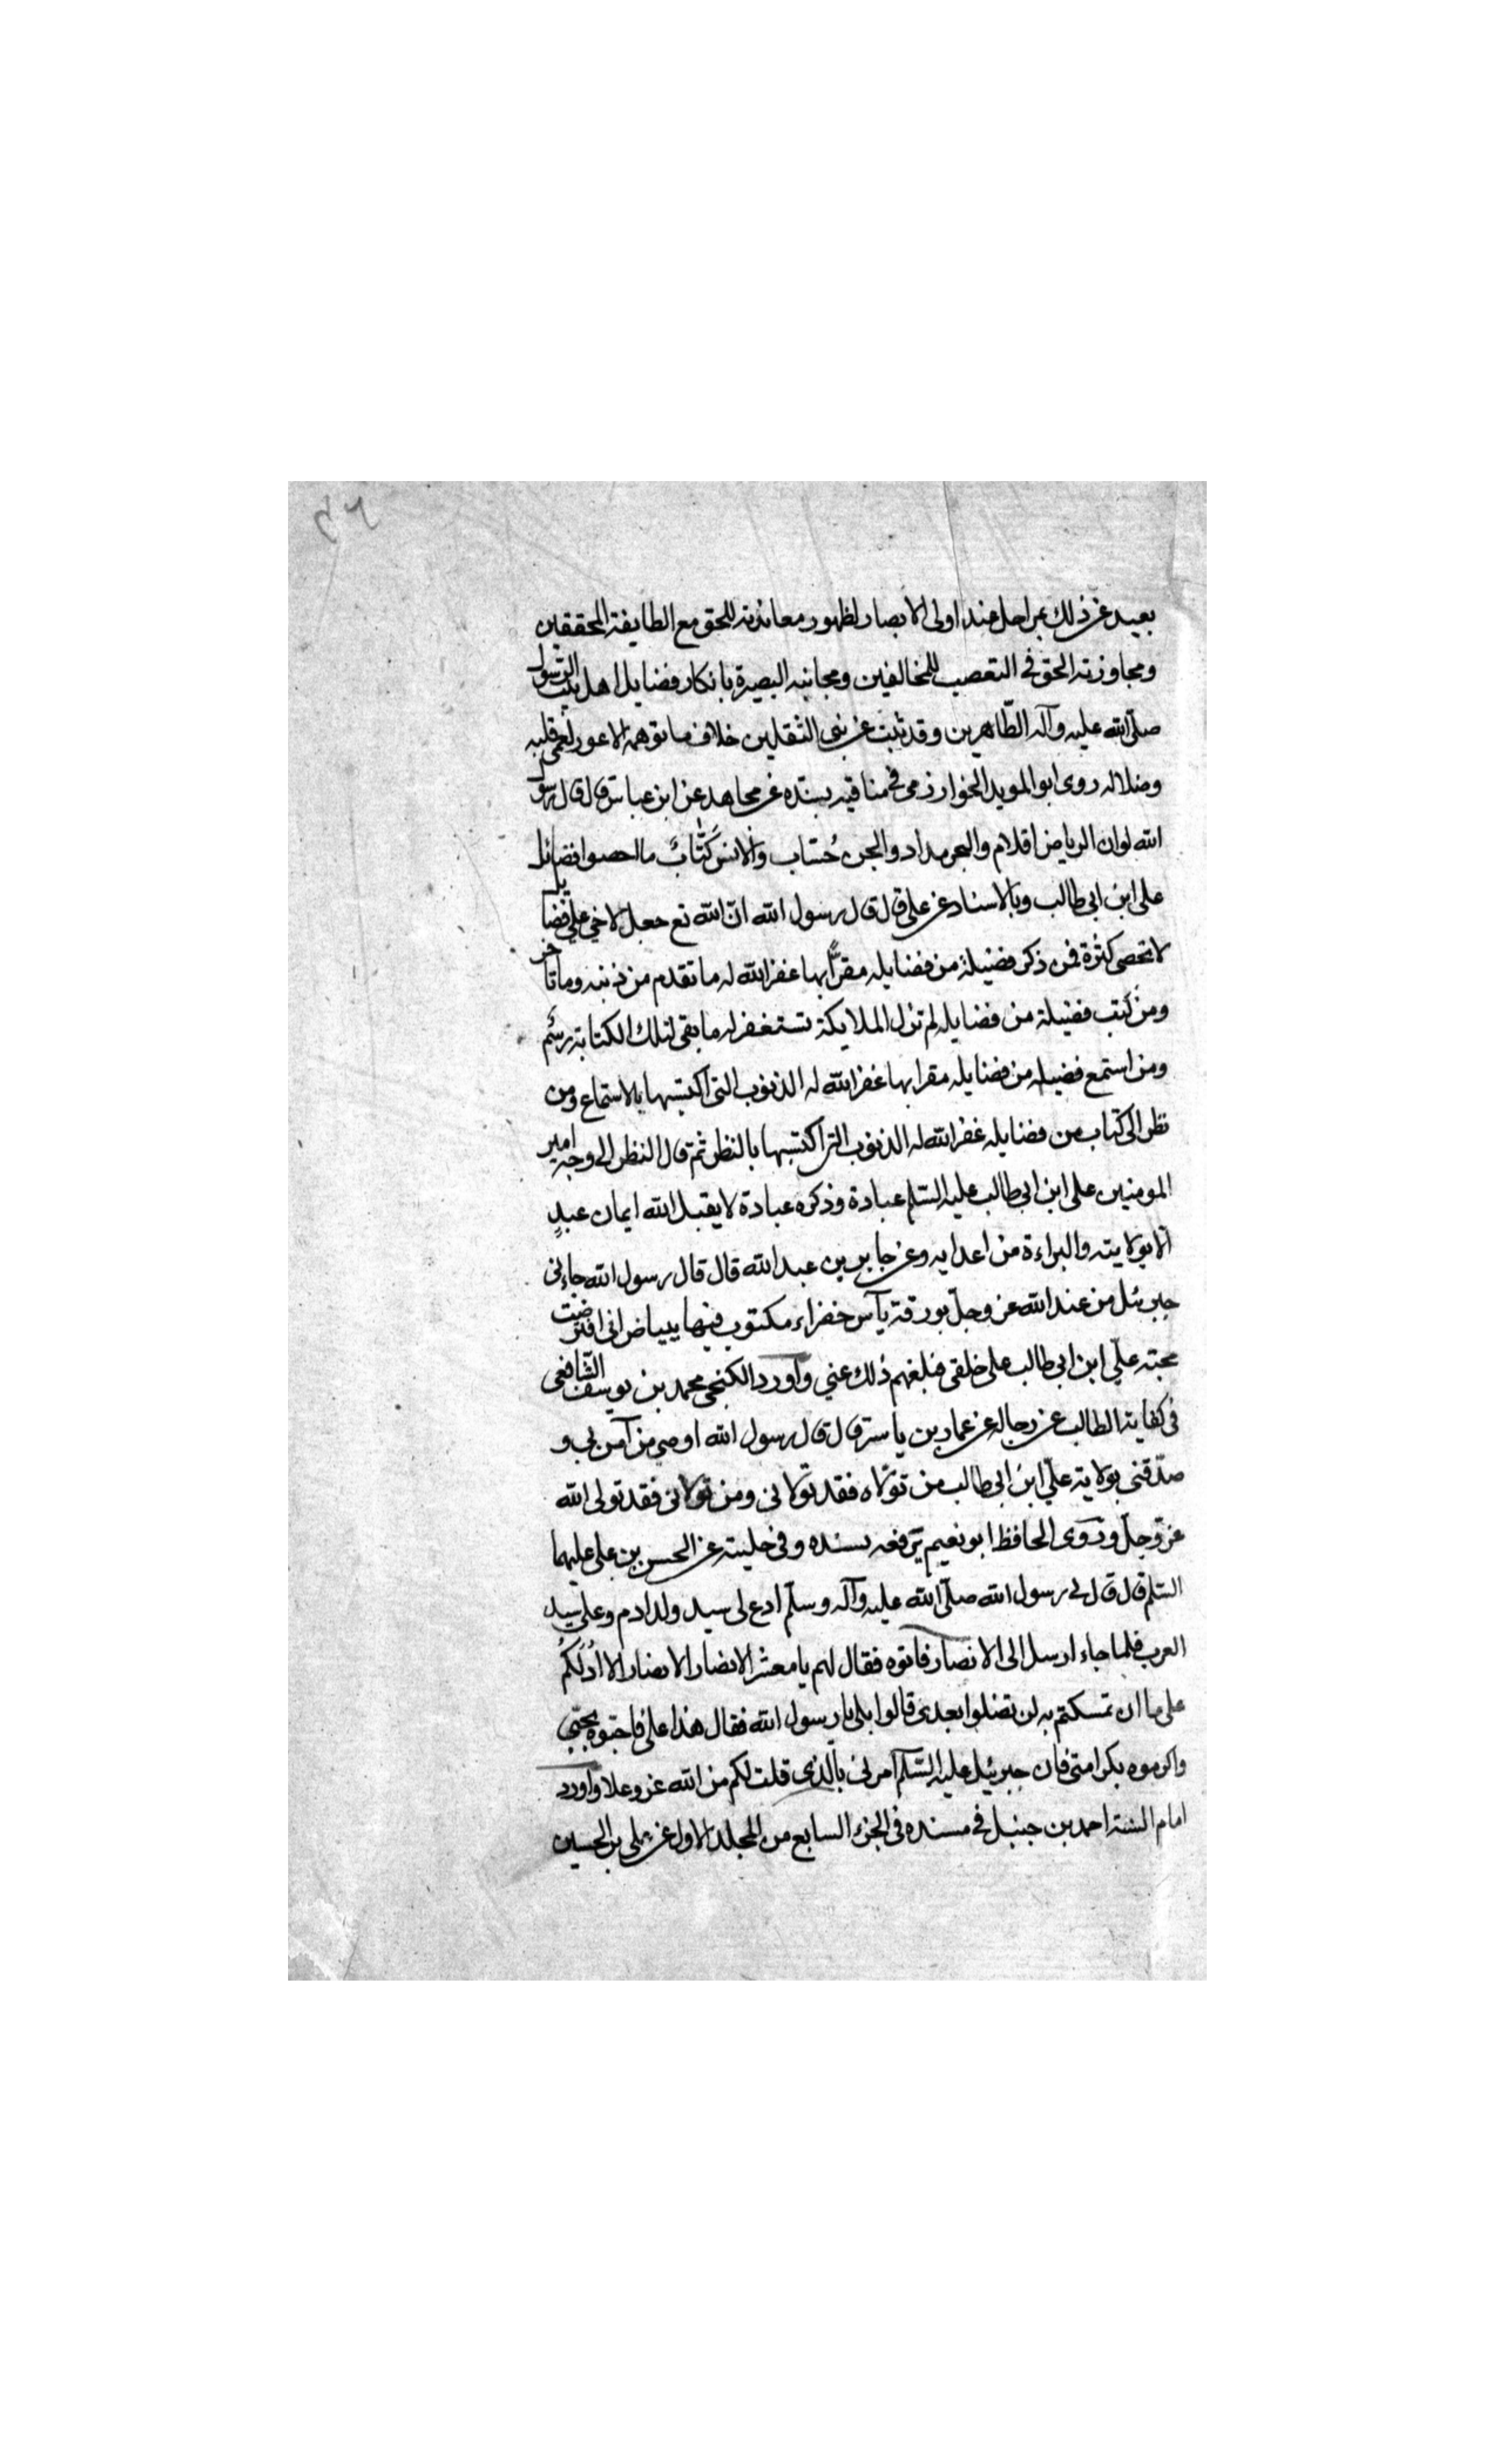 ٤٦
بعيد عن ذلك بمراحل عند اولى الابصار لظهور معاندته للحق مع الطايفة المحققين
ومجاوزته الحق في التعصب للمخالفين ومجانبه البصيرة بانكار فضايل اهل بيت الرسول
صلّى الله عليه وآله الطّاهرين وقد ثبت عن نبى الثقلين خلاف ما توهمه الاعور لعمى قلبه
وضلاله روى ابو المويد الخوارزمى في مناقبه بسنده عن مجاهد عن ابن عباس قال قال رسول
الله لو ان الرياض اقلام والبحر مداد والجن حُسّاب والانس كتّاب ما احصوا فضائل
على ابن ابى طالب وبالاسناد عن على قال قال رسول الله انّ الله تع جعل لاخي علي فضايل
لا تحصى كثرة فمن ذكر فضيلة من فضايله مقرًّا بها غفر الله له ما تقدم من ذنبه وما تاخر
ومن كتب فضيلة من فضايله لم تزل الملايكة تستغفر له ما بقى لتلك الكتابة رسم
ومن استمع فضيله من فضايله مقرا بها غفر الله له الذنوب التى اكتسبها بالاستماع ومن
نظر الى كتاب من فضايله غفر الله له الذنوب التى اكتسبها بالنظر ثم قال النظر الى وجه امير
المومنين على ابن ابى طالب عليه السّلم عبادة وذكره عبادة لا يقبل الله ايمان عبدٍ
الّا بولايته والبراءة من اعدايه وعن جابر بن عبد الله قال قال رسول الله جاءنى
جبرئيل من عند الله عزّ وجلّ بورقة يآس خضراء مكتوب فيها ببياض انى افترضت
محبته عليّ ابن ابى طالب على خلقى فبلغهم ذلك عني وأورد الكنجى محمد بن يوسف الشّافعى
في كفاية الطالب عن رجاله عن عمار بن ياسر قال قال رسول الله اوصى من آمن بى و
صدّقنى بولاية عليّ ابن ابى طالب من تولّاه فقد تولّانى ومن تولانى فقد تولى الله
عزّ وجلّ وروى الحافظ ابو نعيم يرفعه بسنده وفى حليته عن الحسن بن على عليهما
السّلم قال قال لى رسول الله صلّى الله عليه وآله وسلّم ادع لى سيد ولد ادم وعلى سيد
العرب فلما جاء ارسل الى الانصار فاتوه فقال لهم يا معشر الانصار الانصار الا ادُلّكُم
على ما ان تمسكتم به لن تضلوا بعدى قالوا بلى يا رسول الله فقال هذا على فاحبّوه بحبّى
واكرموه بكرامتى فان جبرئيل عليه السّلم آمرنى بالّذى قلت لكم من الله عز وعلا واورد
امام السّنة احمد بن حنبل في مسنده فى الجزء السابع من المجلد الاول عن على بن الحسين